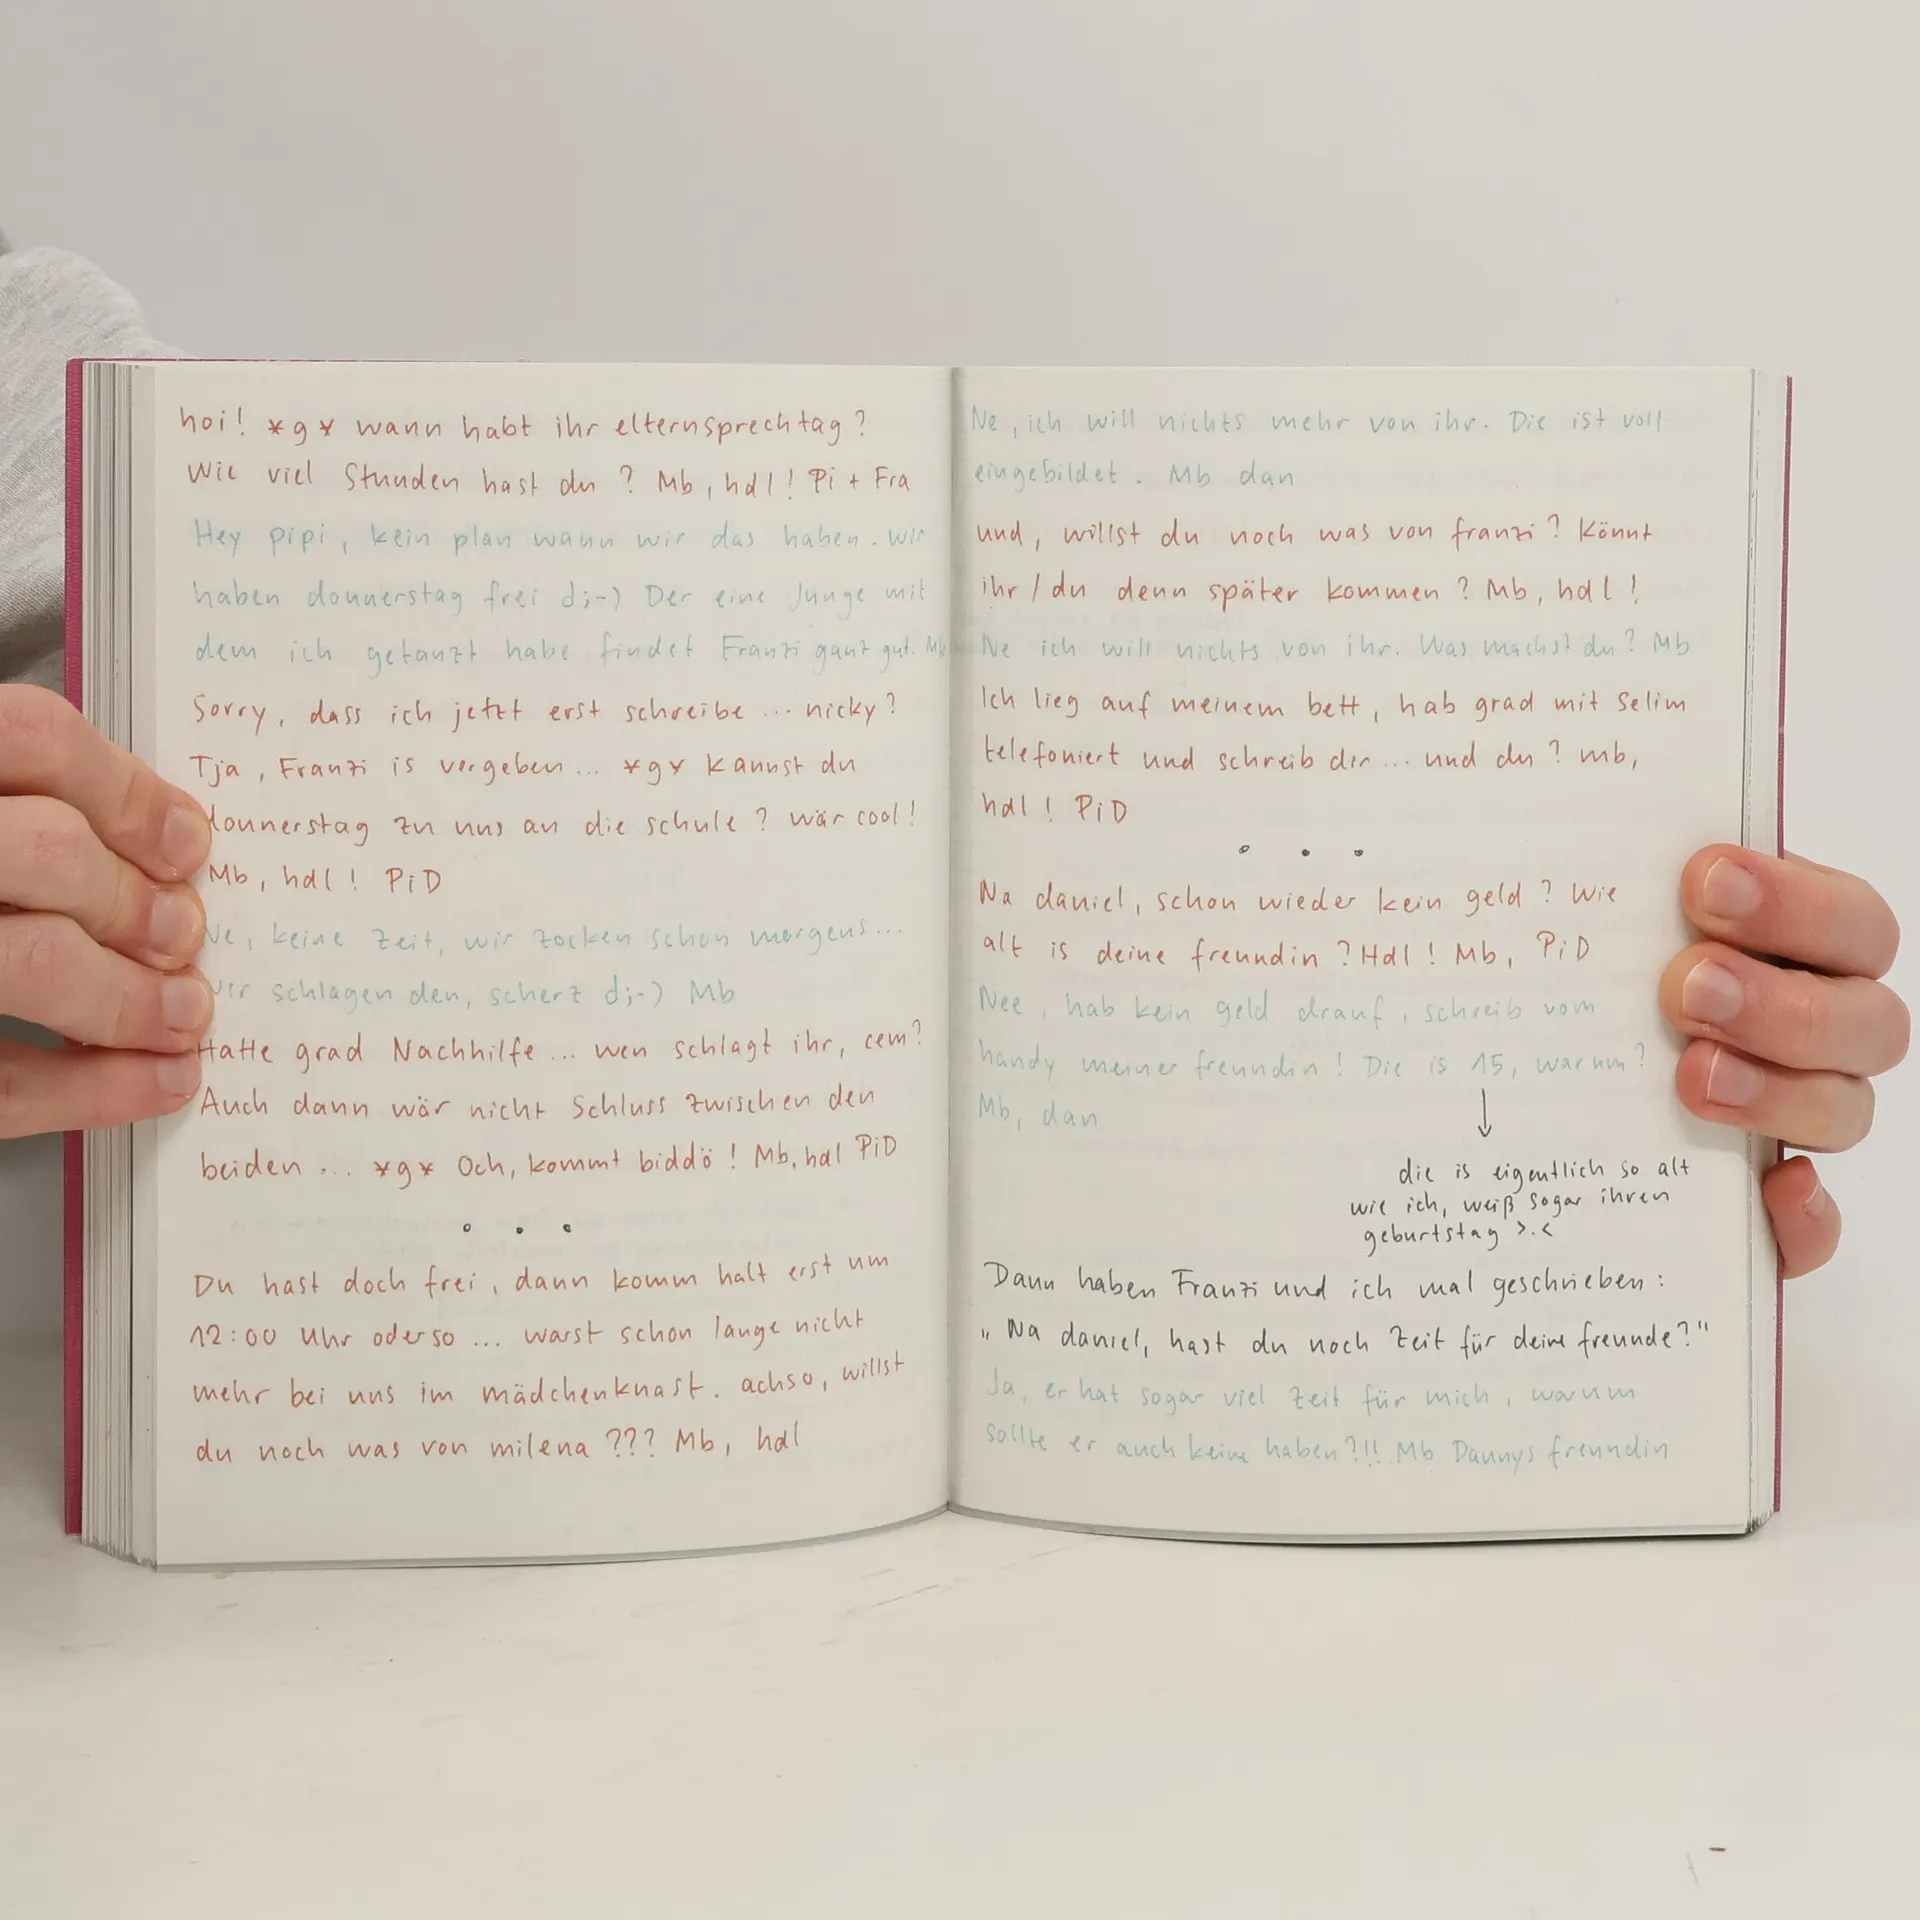 hoi! *g* wann habt ihr elternsprechtag?
Wie viel Stunden hast du? Mb, hdl! Pi + Fra
Hey pipi, kein plan wann wir das haben. wir
haben donnerstag frei d;-) Der eine Junge mit
dem ich getanzt habe findet Franzi ganz gut. Mb
Sorry, dass ich jetzt erst schreibe... nicky?
Tja, Franzi is vergeben... *g* kannst du
donnerstag zu uns an die schule? wär cool!
Mb, hdl! PiD
Ne, keine Zeit, wir zocken schon morgens...
Wir schlagen den, scherz d;-) Mb
Hatte grad Nachhilfe... wen schlagt ihr, cem?
Auch dann wär nicht Schluss zwischen den
beiden... *g* Och, kommt biddö! Mb, hdl PiD
. . .
Du hast doch frei, dann komm halt erst um
12:00 Uhr oderso... warst schon lange nicht
mehr bei uns im mädchenknast. achso, willst
du noch was von milena??? Mb, hdl
Ne, ich will nichts mehr von ihr. Die ist voll
eingebildet. Mb dan
und, willst du noch was von franzi? Könnt
ihr/du denn später kommen? Mb, hdl!
Ne ich will nichts von ihr. Was machst du? Mb
Ich lieg auf meinem bett, hab grad mit Selim
telefoniert und schreib dir... und du? mb,
hdl! PiD
. . .
Na daniel, schon wieder kein geld? Wie
alt is deine freundin? Hdl! Mb, PiD
Nee, hab kein geld drauf, schreib vom
handy meiner freundin! Die is 15, warum?
Mb, dan
die is eigentlich so alt
wie ich, weiß sogar ihren
geburtstag >.<
Dann haben Franzi und ich mal geschrieben:
„Na daniel, hast du noch Zeit für deine freunde?"
Ja, er hat sogar viel Zeit für mich, warum
sollte er auch keine haben?!!. Mb Dannys freundin